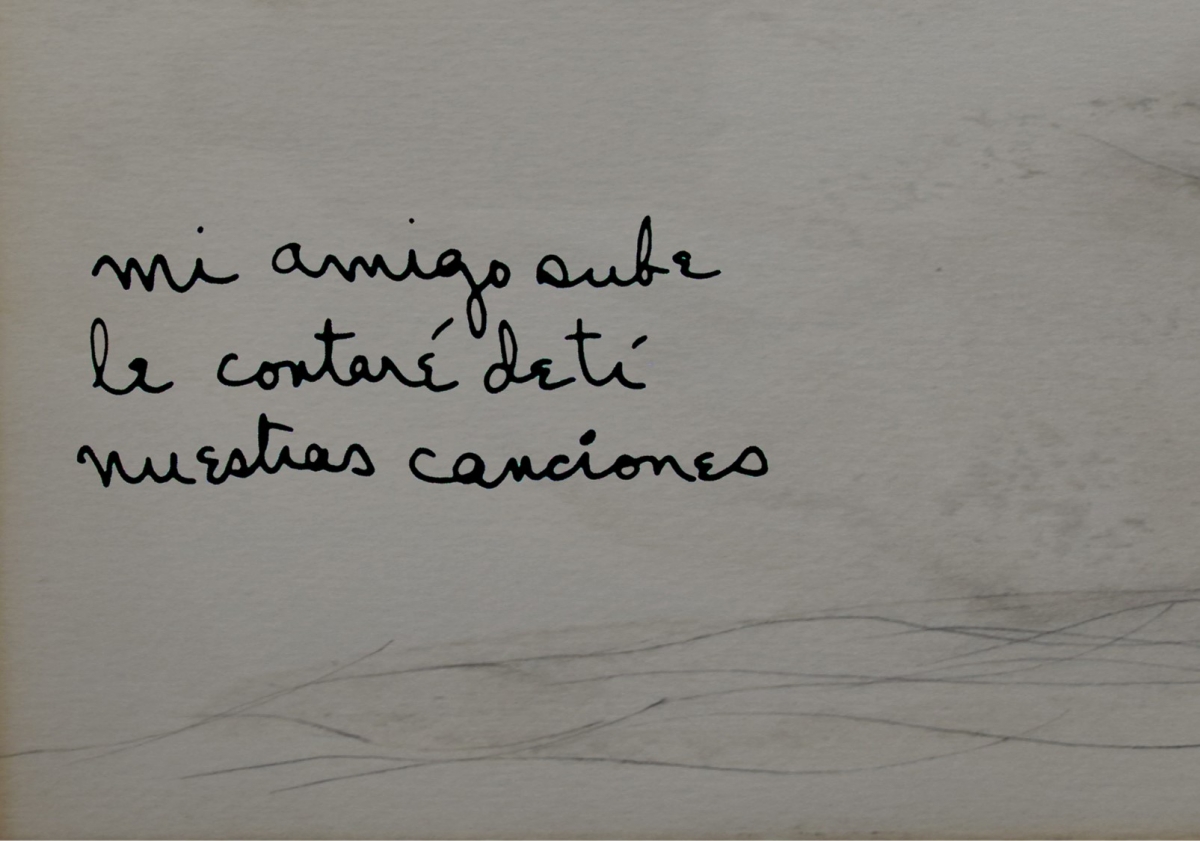 mi amigo sube
le contaré detí
nuestras canciones